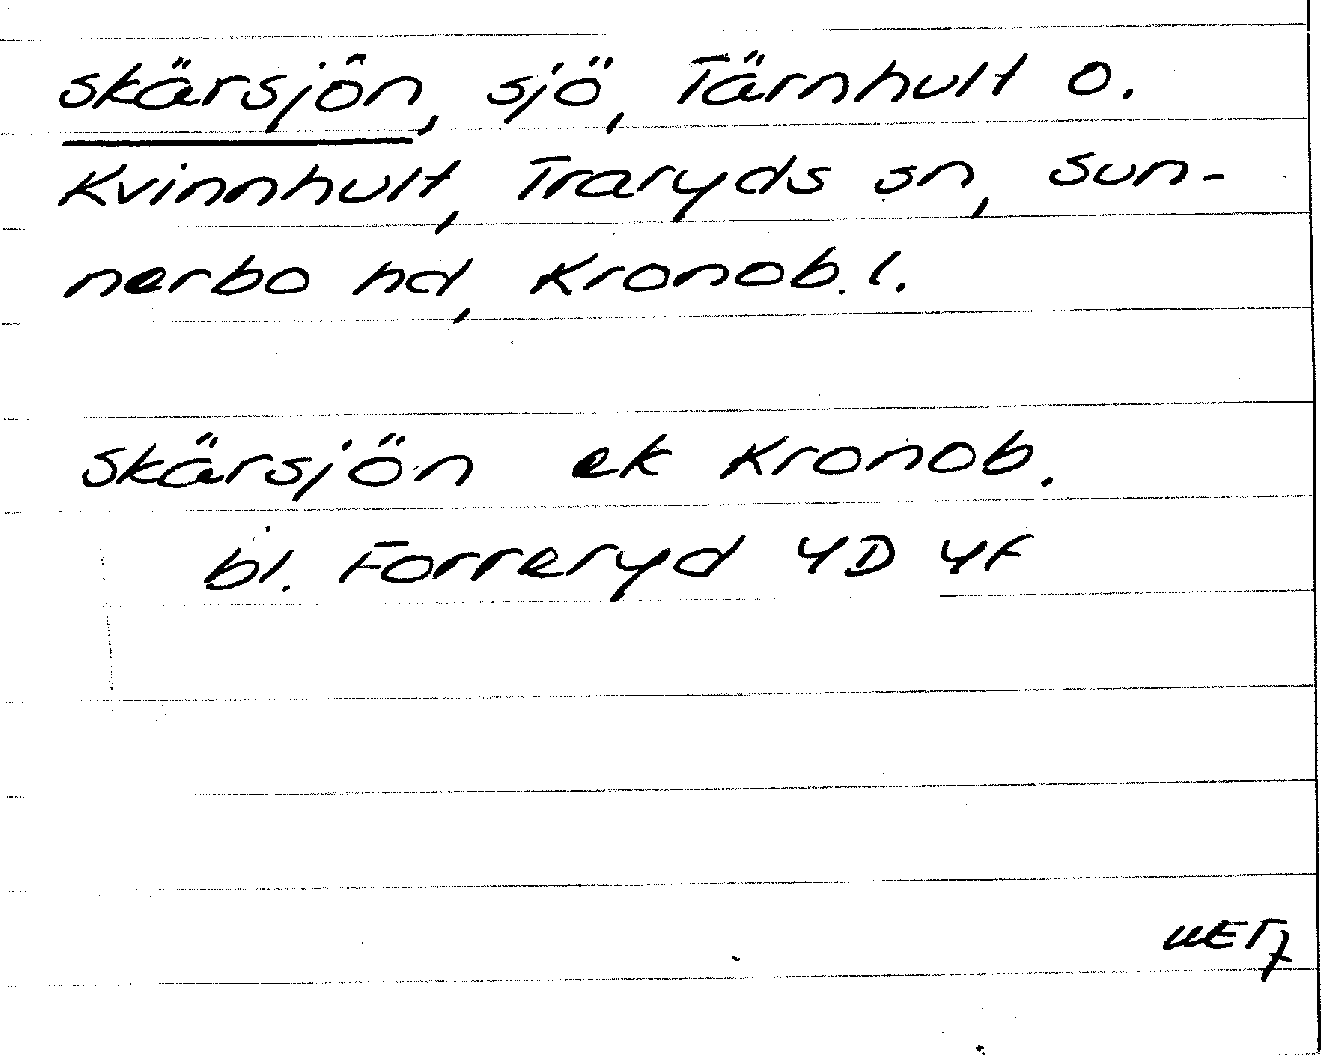 Skärsjön, sjö, Tärnhult o.
Kvinnhult, Traryds sn, Sun-
nerbo hd, Kronob. l.
Skärsjön ek Kronob.
bl. Forreryd 4D 4f